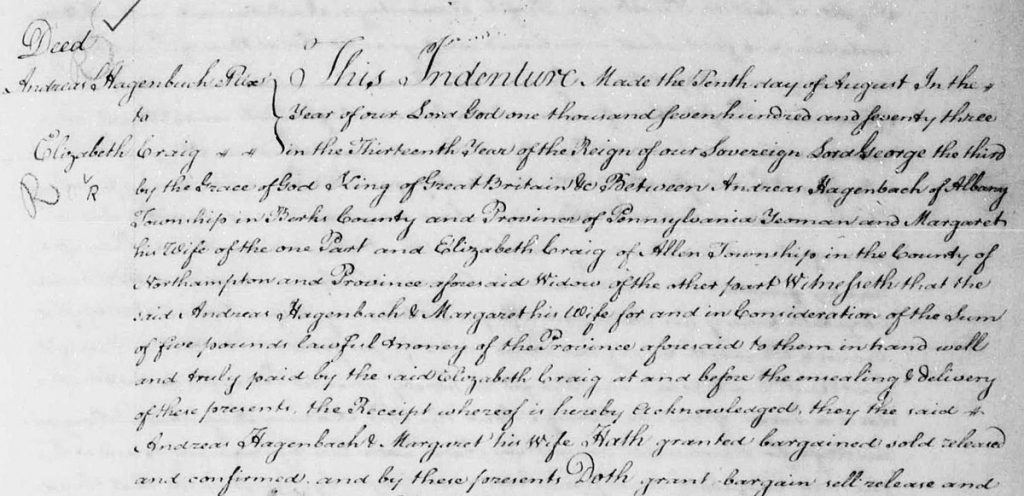 Deed
Andreas Hagenbach & Ux
to
Elizabeth Craig
R R
This Indenture Made the Tenth day of August In the
Year of our Lord God one thousand seven hundred and seventy three
in the Thirteenth Year of the Reign of our Sovereign Lord George the third
by the Grace of God King of Great Britain &c Between Andreas Hagenbach of Albany
Township in Berks County and Province of Pennsylvania Yeoman and Margaret
his Wife of the one Part and Elizabeth Craig of Allen Township in the County of
Northampton and Province aforesaid Widow of the other part Witnesseth that the
said Andreas Hagenbach & Margaret his Wife for and in Consideration of the Sum
of five pounds lawful money of the Province aforesaid to them in hand well
and truly paid by the said Elizabeth Craig at and before the ensealing & delivery
of these presents, the Receipt whereof is hereby Acknowledged, they the said
Andreas Hagenbach & Margaret his Wife Hath granted bargained sold released
and confirmed, and by these presents Doth grant bargain sell release and